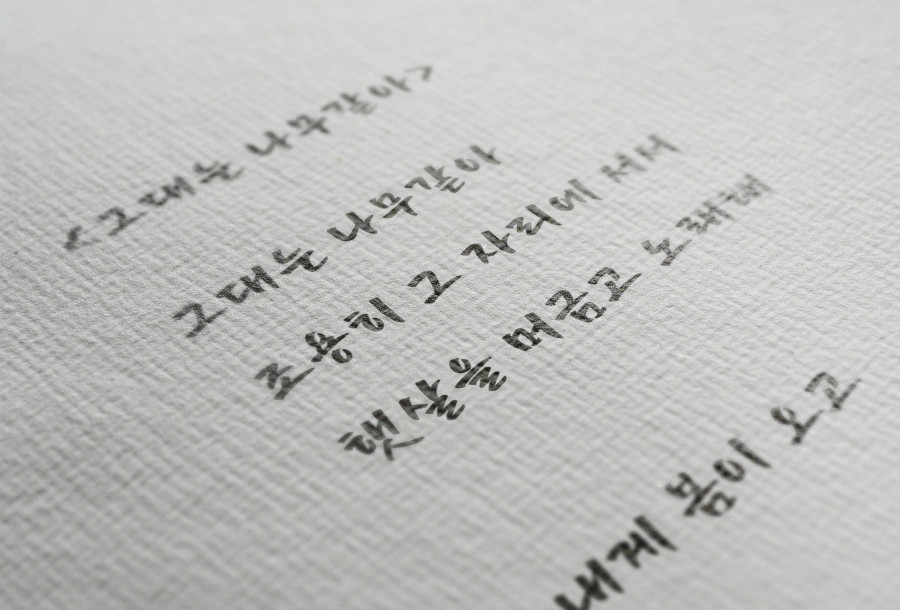 <그대는 나무같아>
그대는 나무같아
조용히 그 자리에 서서
햇살을 머금고 노래해
내게 봄이 오고